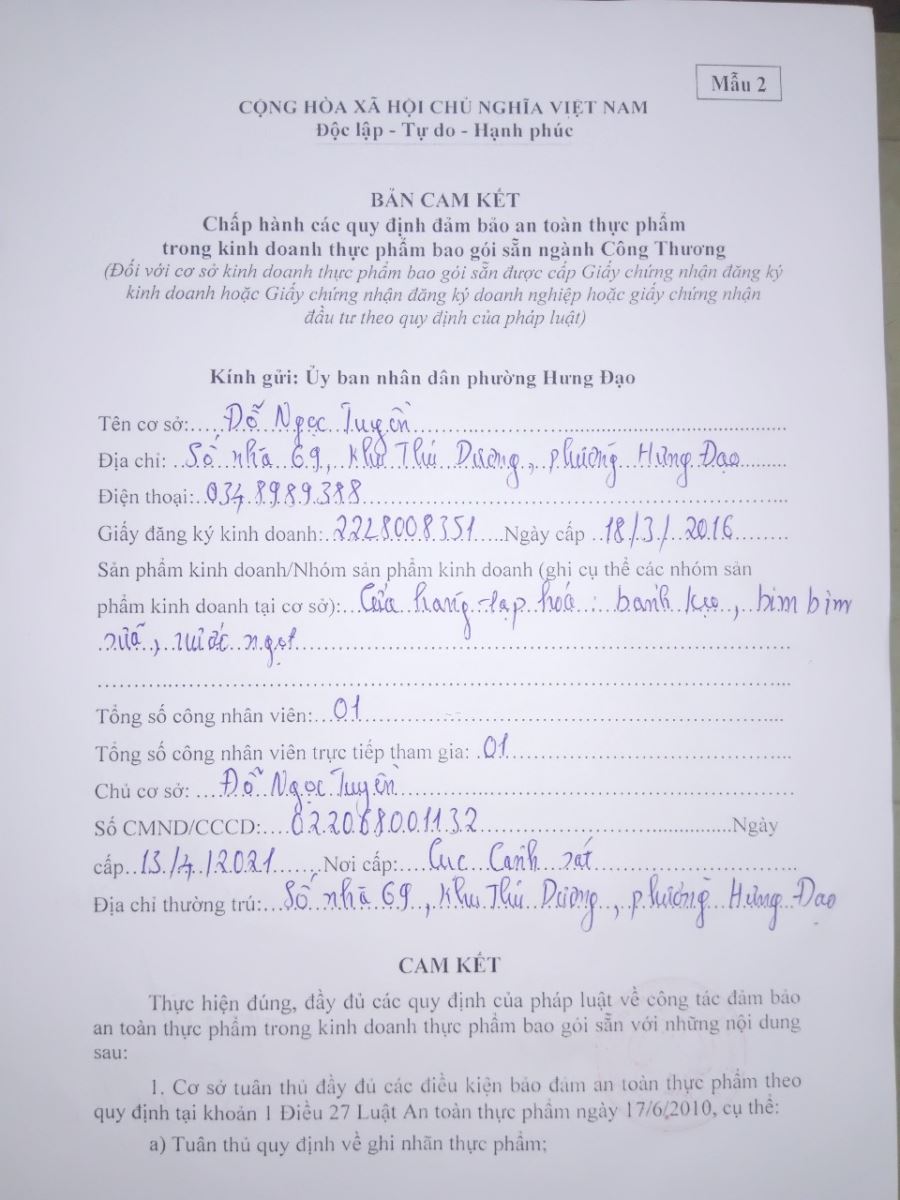 Mẫu 2
CỘNG HÒA XÃ HỘI CHỦ NGHĨA VIỆT NAM
Độc lập - Tự do - Hạnh phúc
BẢN CAM KẾT
Chấp hành các quy định đảm bảo an toàn thực phẩm
trong kinh doanh thực phẩm bao gói sẵn ngành Công Thương
(Đối với cơ sở kinh doanh thực phẩm bao gói sẵn được cấp Giấy chứng nhận đăng ký
kinh doanh hoặc Giấy chứng nhận đăng ký doanh nghiệp hoặc giấy chứng nhận
đầu tư theo quy định của pháp luật)
Kính gửi: Ủy ban nhân dân phường Hưng Đạo
Tên cơ sở: Đỗ Ngọc Tuyền
Địa chỉ: Số nhà 69, Khu Thủ Dương, phường Hưng Đạo
Điện thoại: 034.8989.388
Giấy đăng ký kinh doanh: 22L8008351 Ngày cấp 18/3/2016
Sản phẩm kinh doanh/Nhóm sản phẩm kinh doanh (ghi cụ thể các nhóm sản
phẩm kinh doanh tại cơ sở): Cửa hàng tạp hoá: bánh kẹo, bim bim
sữa, nước ngọt
Tổng số công nhân viên: 01
Tổng số công nhân viên trực tiếp tham gia: 01
Chủ cơ sở: Đỗ Ngọc Tuyền
Số CMND/CCCD: 022068001132 Ngày
cấp 13/4/2021 Nơi cấp: Cục Cảnh sát
Địa chỉ thường trú: Số nhà 69, Khu Thủ Dương, phường Hưng Đạo
CAM KẾT
Thực hiện đúng, đầy đủ các quy định của pháp luật về công tác đảm bảo
an toàn thực phẩm trong kinh doanh thực phẩm bao gói sẵn với những nội dung
sau:
1. Cơ sở tuân thủ đầy đủ các điều kiện bảo đảm an toàn thực phẩm theo
quy định tại khoản 1 Điều 27 Luật An toàn thực phẩm ngày 17/6/2010, cụ thể:
a) Tuân thủ quy định về ghi nhãn thực phẩm;